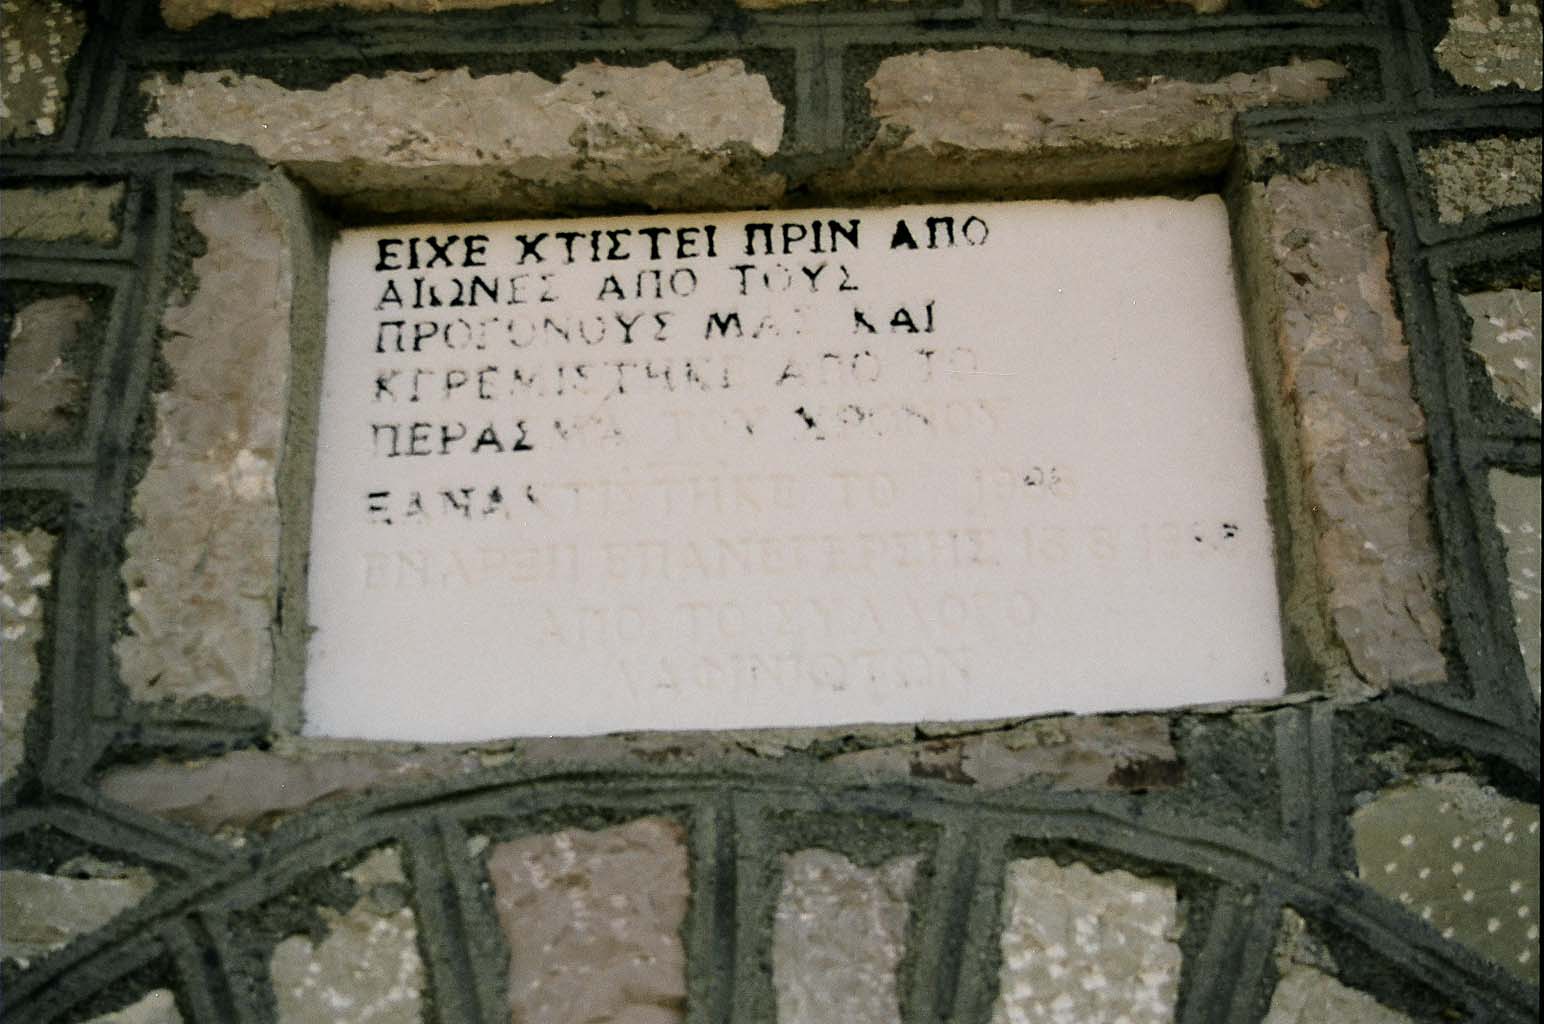 ΕΙΧΕ ΧΤΙΣΤΕΙ ΠΡΙΝ ΑΠΟ
ΑΙΩΝΕΣ ΑΠΟ ΤΟΥΣ
ΠΡΟΓΟΝΟΥΣ ΜΑΣ ΚΑΙ
ΚΓΡΕΜΙΣΤΗΚΕ ΑΠΟ ΤΟ
ΠΕΡΑΣΜΑ ΤΟΥ ΧΡΟΝΟΣ
ΞΑΝΑΚΤΙΣΤΗΚΕ ΤΟ
ΕΠΑΝΕΓΕΡΣΗΣ
ΑΠΟ ΤΟ ΣΥΛΛΟΓΟ